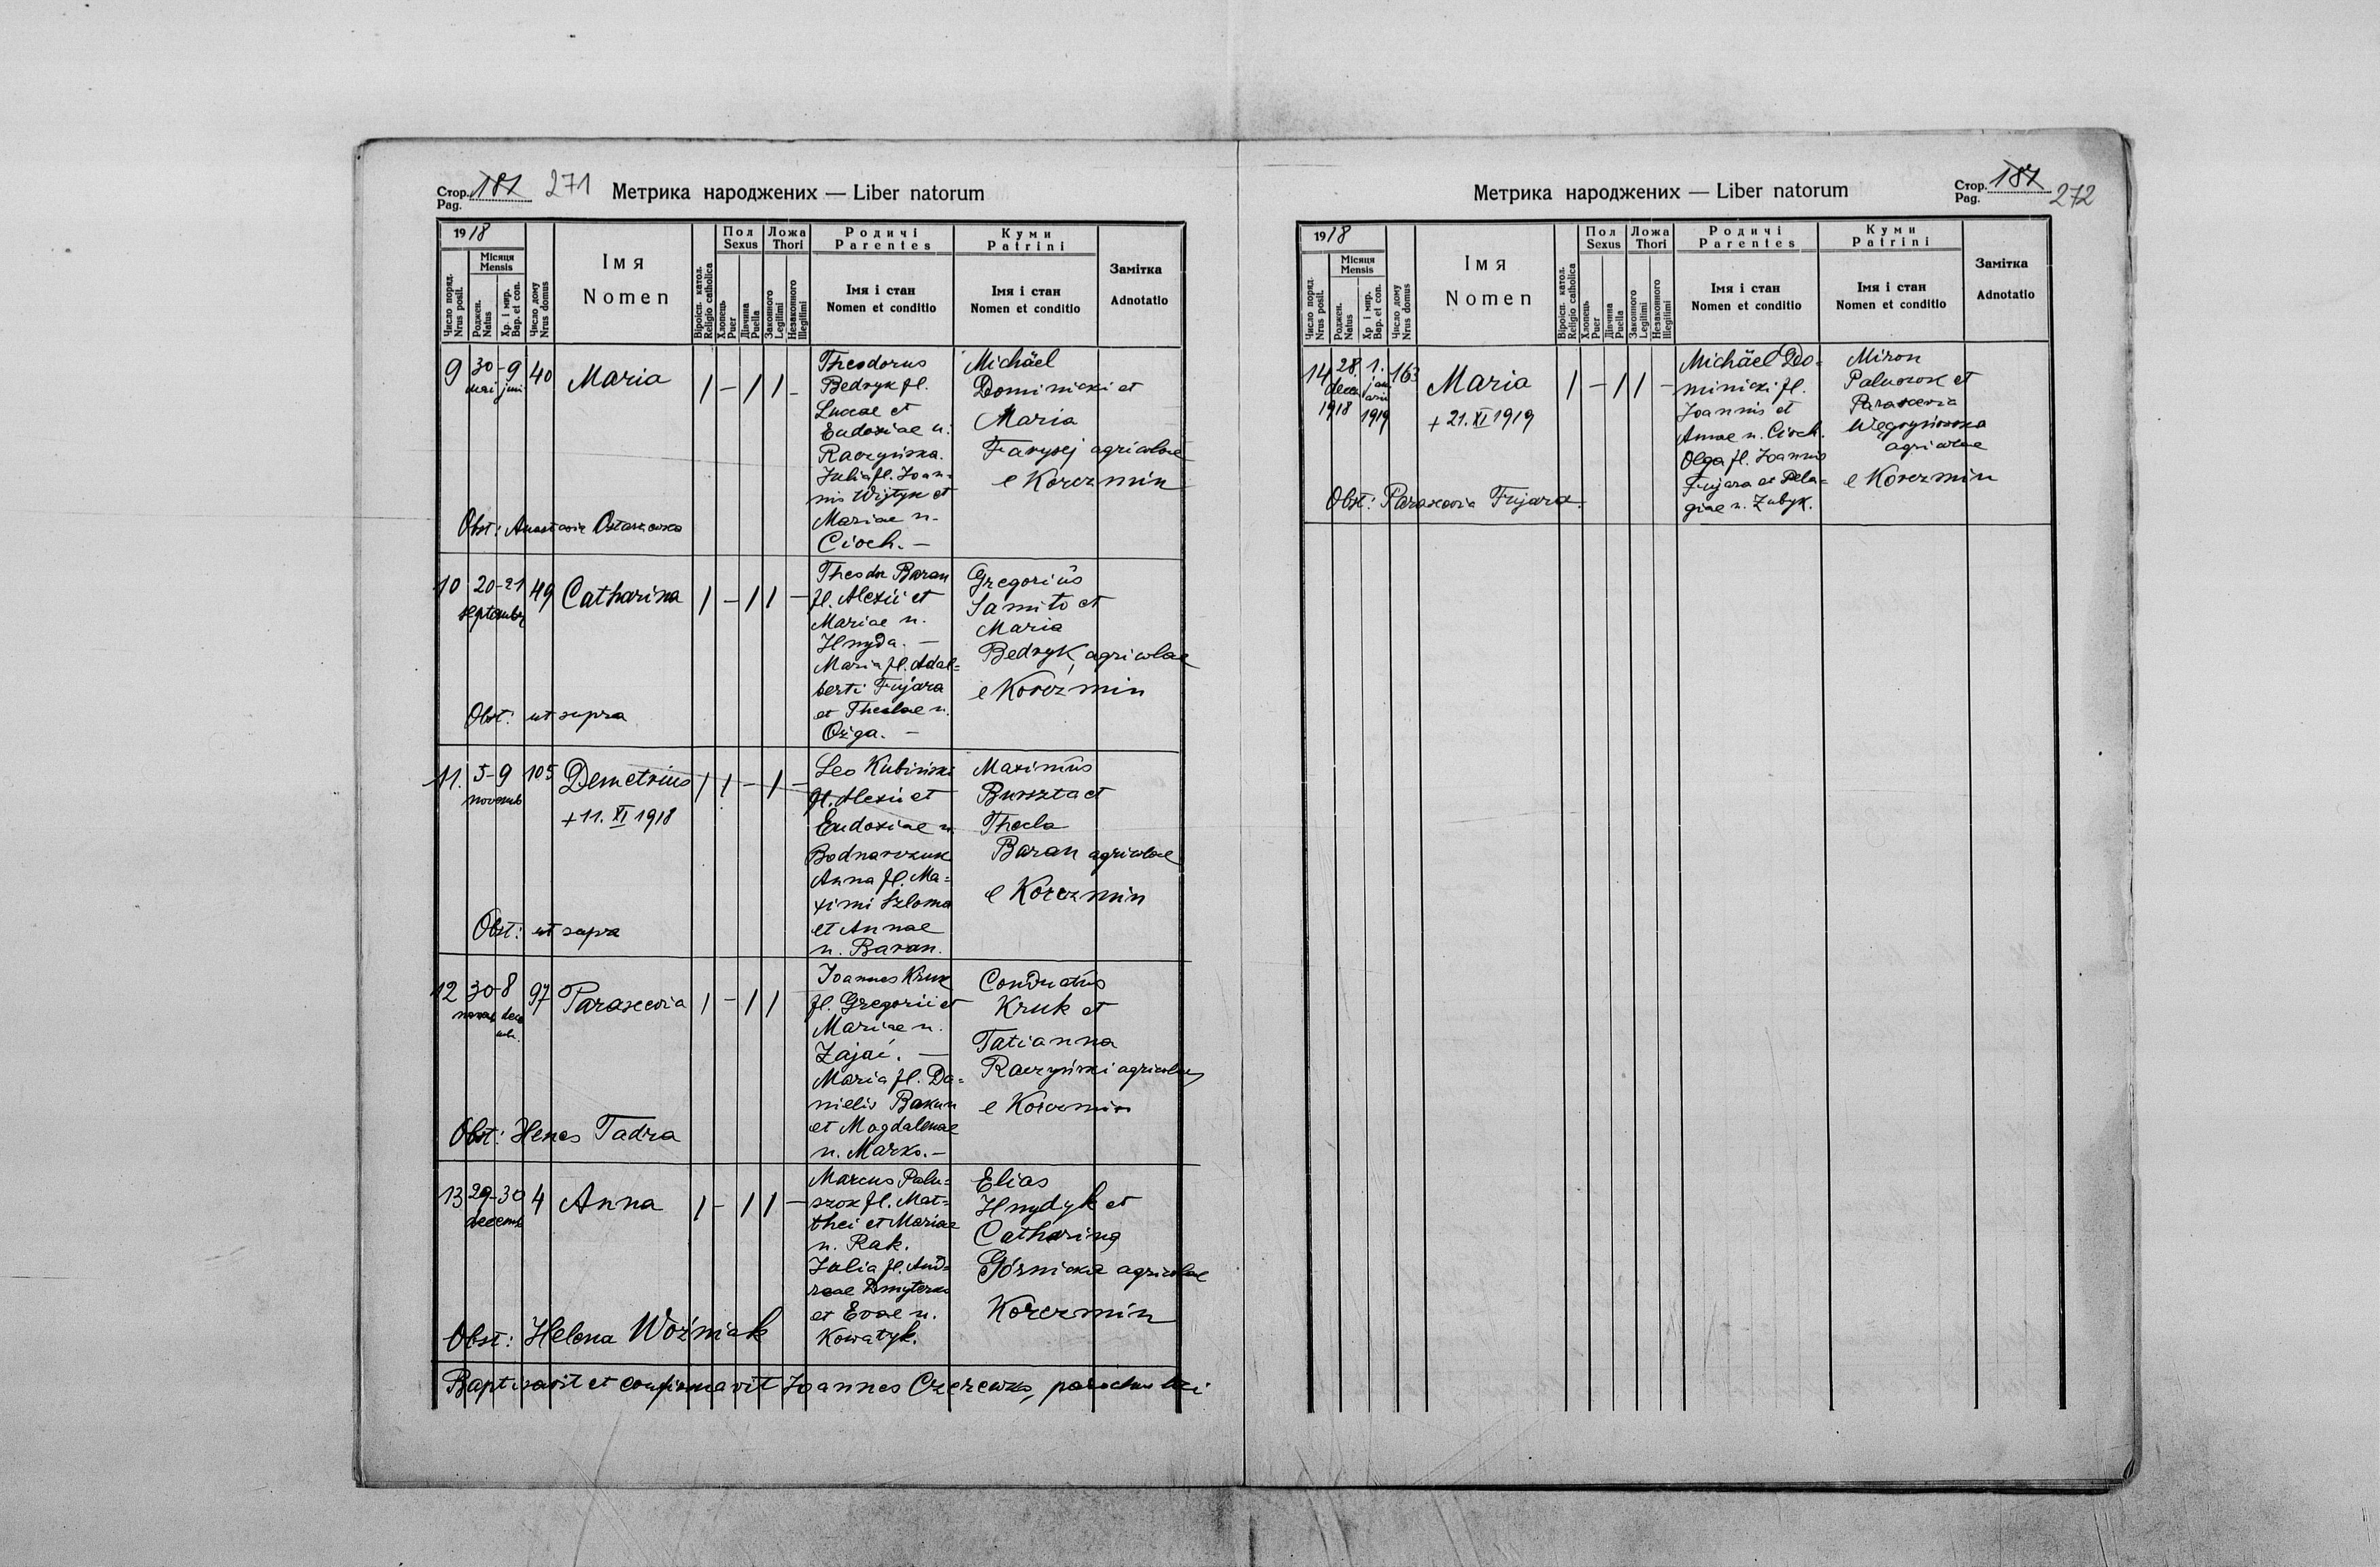 Стор. Pag. 181 271 Метрика народжених — Liber natorum
1918
Число поряд. Nrus posit.
Місяця Mensis
Роджен. Natus
Хр. і мир. Bap. et con.
Число дому Nrus domus
Імя Nomen
Віроісп. катол. Religio catholica
Пол Sexus
Хлопець Puer
Дівчина Puella
Ложа Thori
Законного Legitimi
Незаконного Illegitimi
Родичі Parentes
Імя і стан Nomen et conditio
Куми Patrini
Імя і стан Nomen et conditio
Замітка Adnotatio
9 30 mai - 9 juni 40 Maria 1 - 1 1 -
Theodorus
Bedryk fl.
Lucae et
Eudoxiae n.
Raczyńska.
Julia fl. Joan-
nis Wijtyk et
Mariae n.
Cioch. —
Michäel
Dominicki et
Maria
Farysej agricolae
e Korczmin
Obst: Anastasia
10 20-21 septembr 49 Catharina 1 - 1 1 -
Theodor Baran
fl. Alexii et
Mariae n.
Hnyda. —
Maria fl. Adal=
berti Fujara
et Theclae n.
Ożga. —
Gregoriŭs
Samito et
Maria
Bedryk, agricolae
e Korczmin
Obst: ut supra
11. 5-9 novemb 105 Demetrius 1 1 - 1 -
+ 11. XI 1918
Leo Kubiński
fl. Alexii et
Eudoxiae n.
Bodnarczuk
Anna fl. Ma=
ximi Szloma
et Annae
n. Baran.
Maximŭs
Burszta et
Thecla
Baran agricolae
e Korczmin
Obst: ut supra
12 30-8 97 Parascevia 1 - 1 1
Joannes Kruk
fl. Gregorii et
Mariae n.
Zając. —
Maria fl. Da=
nielis Bakun
et Magdalenae
n. Marko. —
Conductŭs
Kruk et
Tatianna
Raczyński agricolae
e Korczmin
Obst: Tadra
13 29-30 decemb 4 Anna 1 - 1 1 -
Marcus Palu=
szok fl. Mat=
thei et Mariae
n. Rak.
Julia fl. And=
reae Dmyterko
et Evae n.
Kowatyk.
Elias
Hnydyk et
Catharina
Górnicka agricolae
Korczmin
Obst: Helena Woźniak
Baptisavit et confirmavit Joannes parochus
Метрика народжених — Liber natorum Стор. Pag. 181 272
1918
Число поряд. Nrus posit.
Місяця Mensis
Роджен. Natus
Хр. і мир. Bap. et con.
Число дому Nrus domus
Імя Nomen
Віроісп. катол. Religio catholica
Пол Sexus
Хлопець Puer
Дівчина Puella
Ложа Thori
Законного Legitimi
Незаконного Illegitimi
Родичі Parentes
Імя і стан Nomen et conditio
Куми Patrini
Імя і стан Nomen et conditio
Замітка Adnotatio
14 28. dec. 1918 1. januarii 1919 163 Maria 1 - 1 1 -
+ 21. XI 1919
Michäel Do=
minicki fl.
Joannis et
Annae n. Cioch.
Olga fl. Joannis
Fujara et Pela=
giae n. Zubyk.
Miron
Paluszok et
Parascevia
Węgrynowska
agricolae
e Korczmin
Obst: Parascevia Fujara.